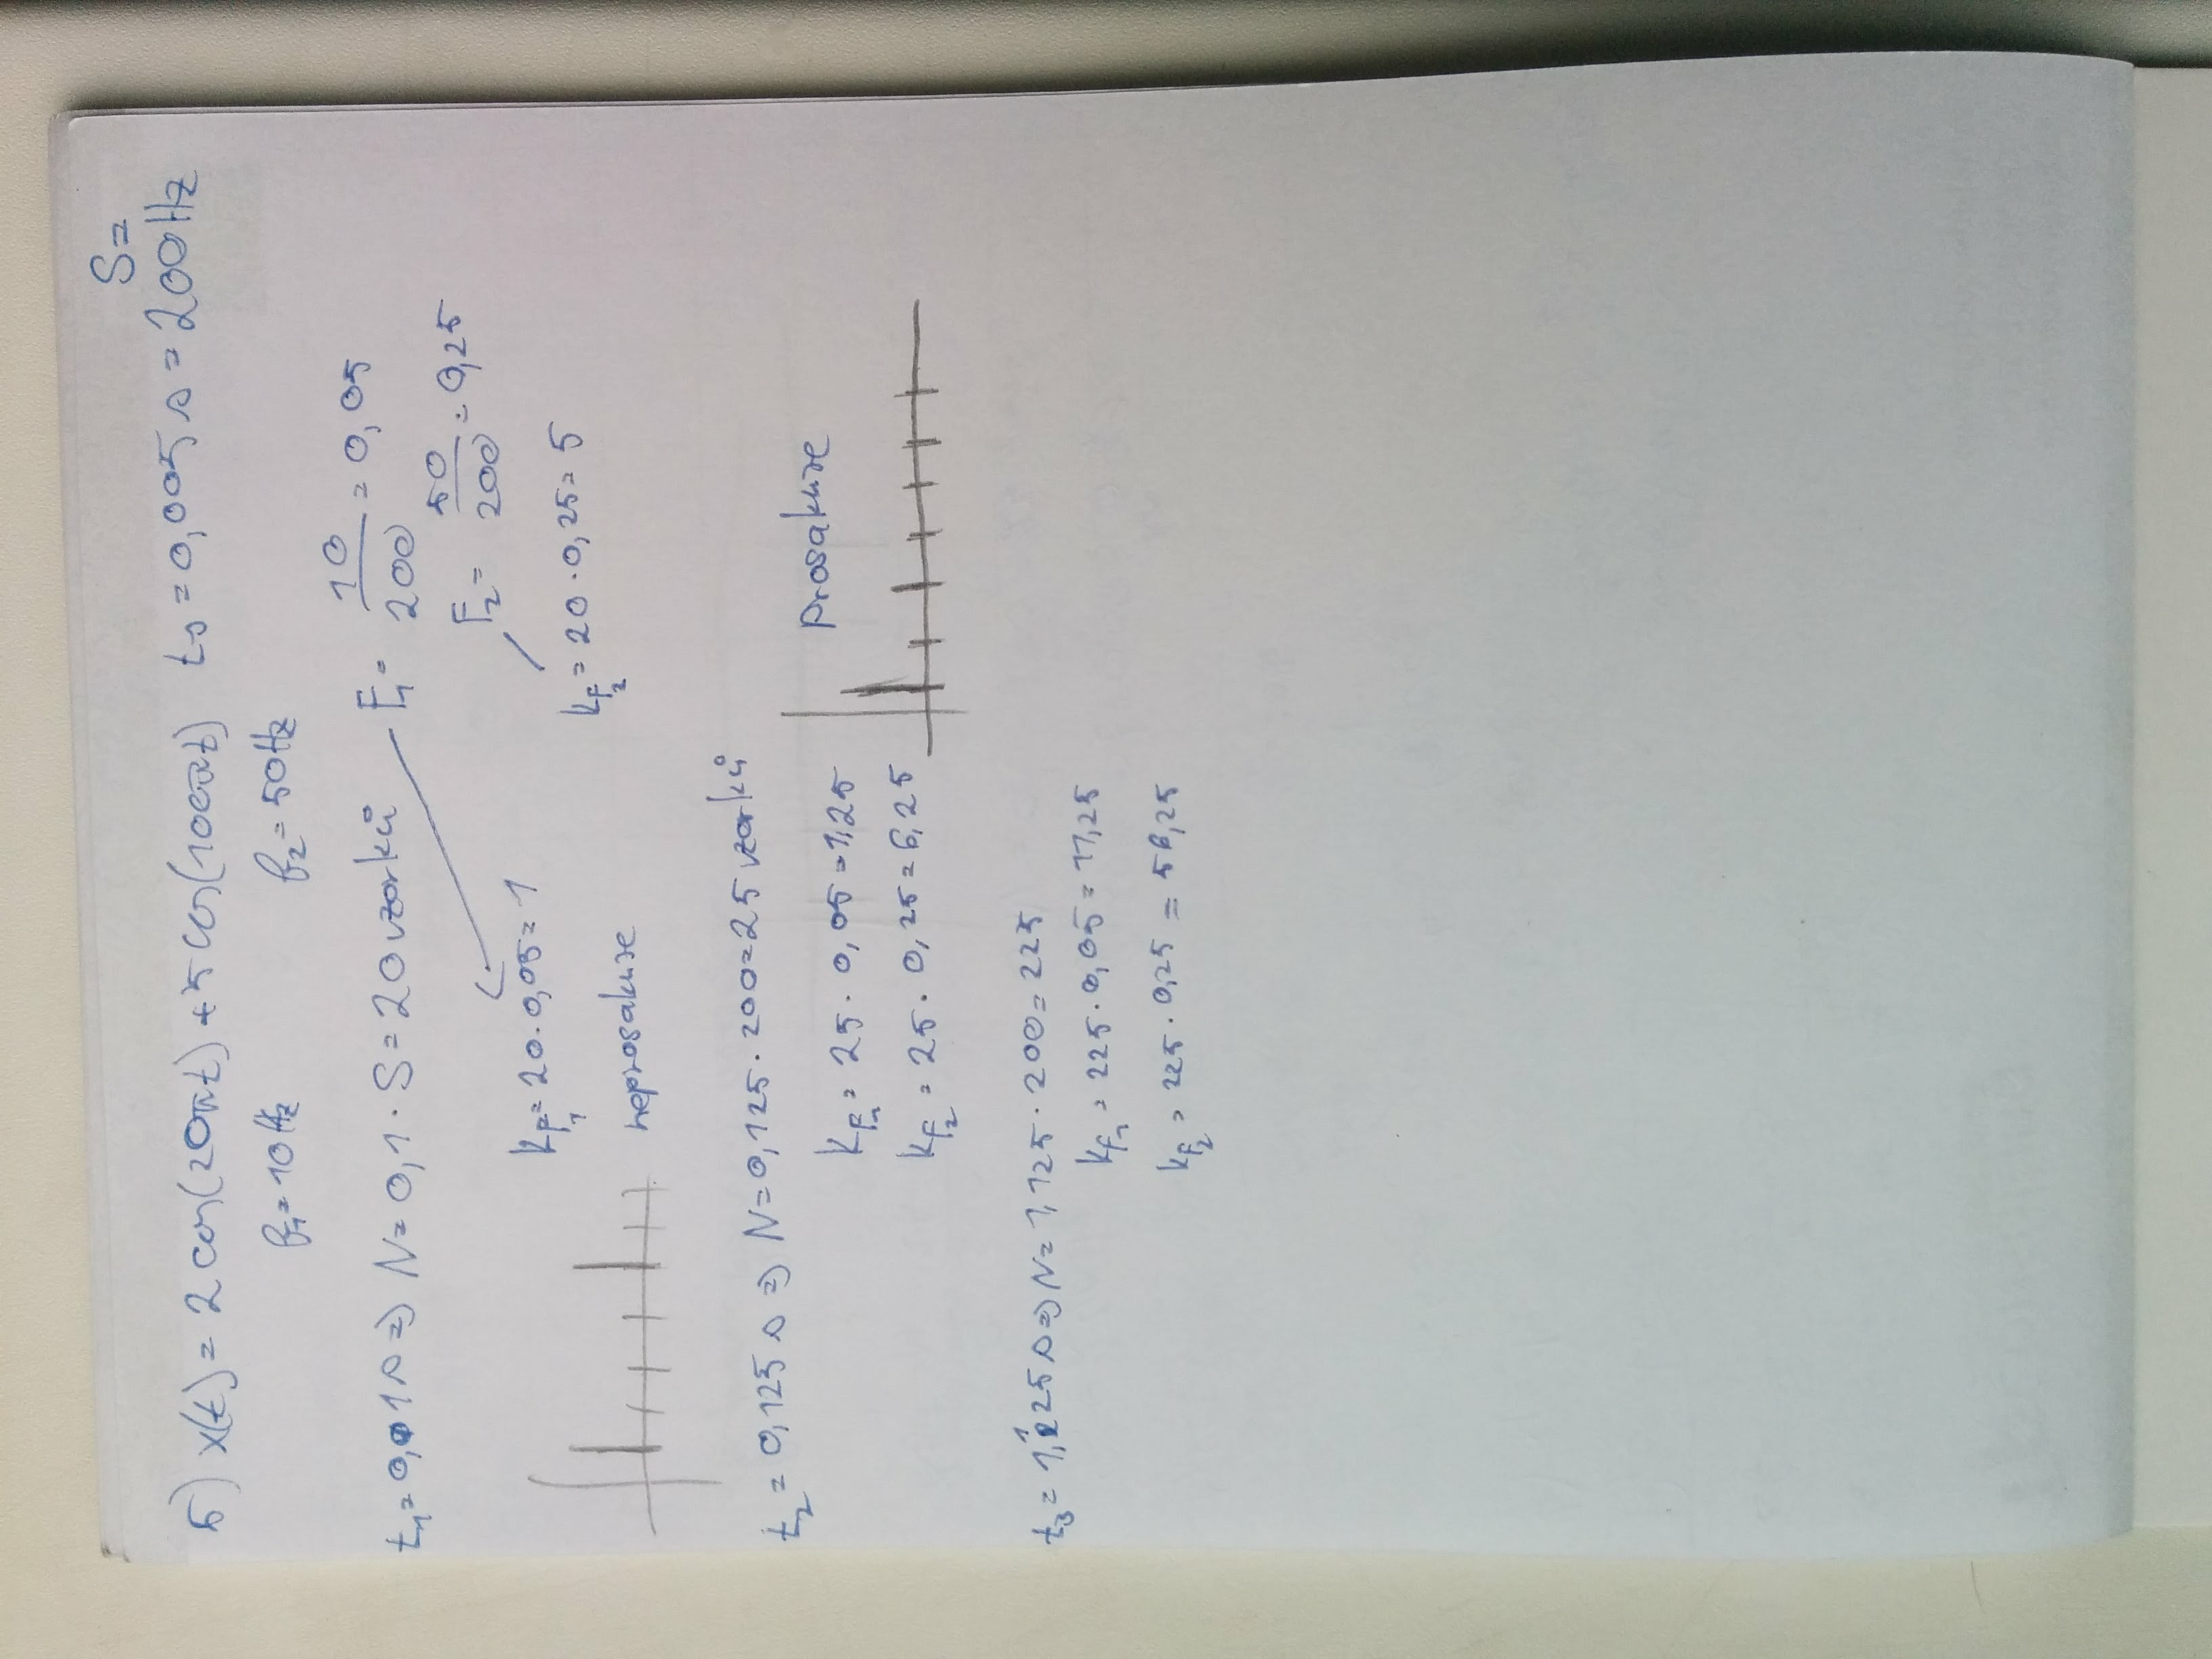 S=
5) x(t) = 2 cos(20πt) + 5 cos(100πt) ts = 0,005 s = 200Hz
f1 = 10Hz f2 = 50Hz
t1 = 0,1 s => N = 0,1 · S = 20 vzorků F1 = 10/200 = 0,05
F2 = 50/200 = 0,25
kF1 = 20 · 0,05 = 1 kF2 = 20 · 0,25 = 5
neprosakuje
t2 = 0,125 s => N = 0,125 · 200 = 25 vzorků
kF1 = 25 · 0,05 = 1,25 prosakuje
kF2 = 25 · 0,25 = 6,25
t3 = 1,125 s => N = 1,125 · 200 = 225
kF1 = 225 · 0,05 = 11,25
kF2 = 225 · 0,25 = 56,25